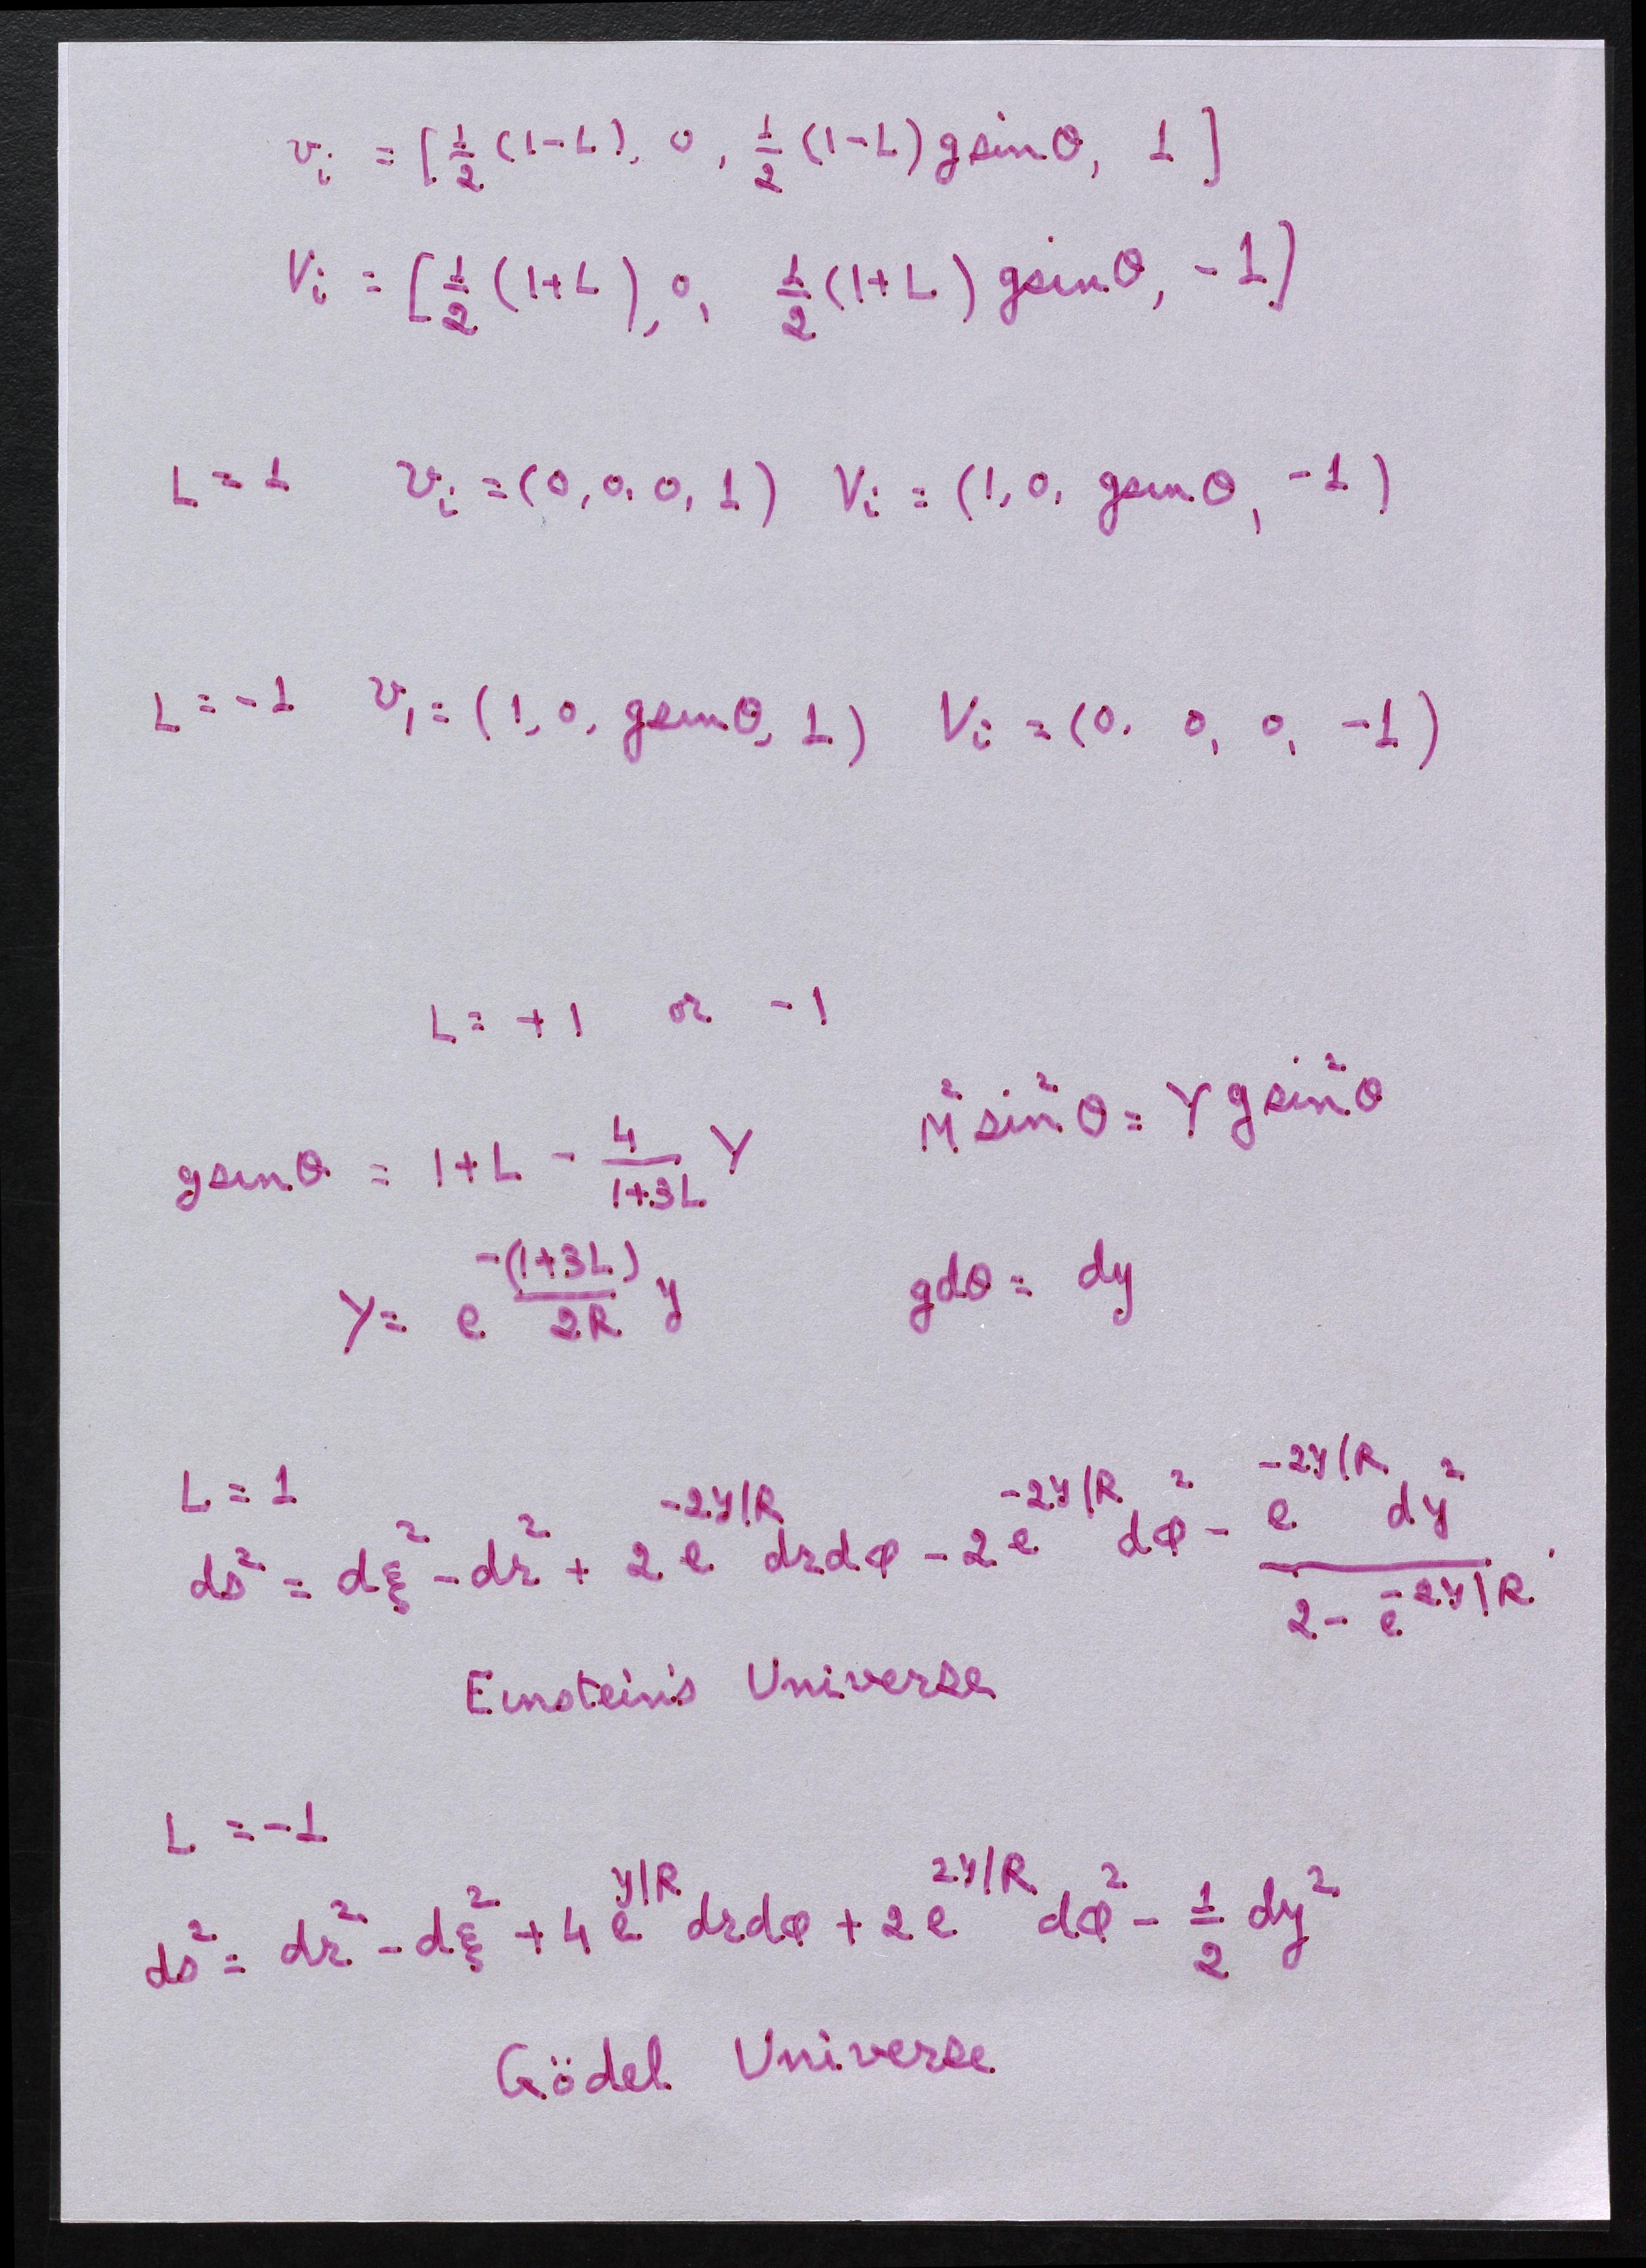 v_i = [1/2 (1-L), 0, 1/2 (1-L) g sinθ, 1]
V_i = [1/2 (1+L), 0, 1/2 (1+L) g sinθ, -1]
L = 1 v_i = (0, 0, 0, 1) V_i = (1, 0, g sinθ, -1)
L = -1 v_i = (1, 0, g sinθ, 1) V_i = (0, 0, 0, -1)
L = +1 or -1
g sinθ = 1+L - 4/(1+3L) Y M² sin²θ = Y g sin²θ
Y = e^(-(1+3L)/2R y) g dθ = dy
L = 1
ds² = dξ² - dr² + 2 e^(-2y/R) dr dφ - 2 e^(-2y/R) dφ² - e^(-2y/R) dy² / (2 - e^(-2y/R)).
Einstein's Universe
L = -1
ds² = dr² - dξ² + 4 e^(y/R) dr dφ + 2 e^(2y/R) dφ² - 1/2 dy²
Gödel Universe